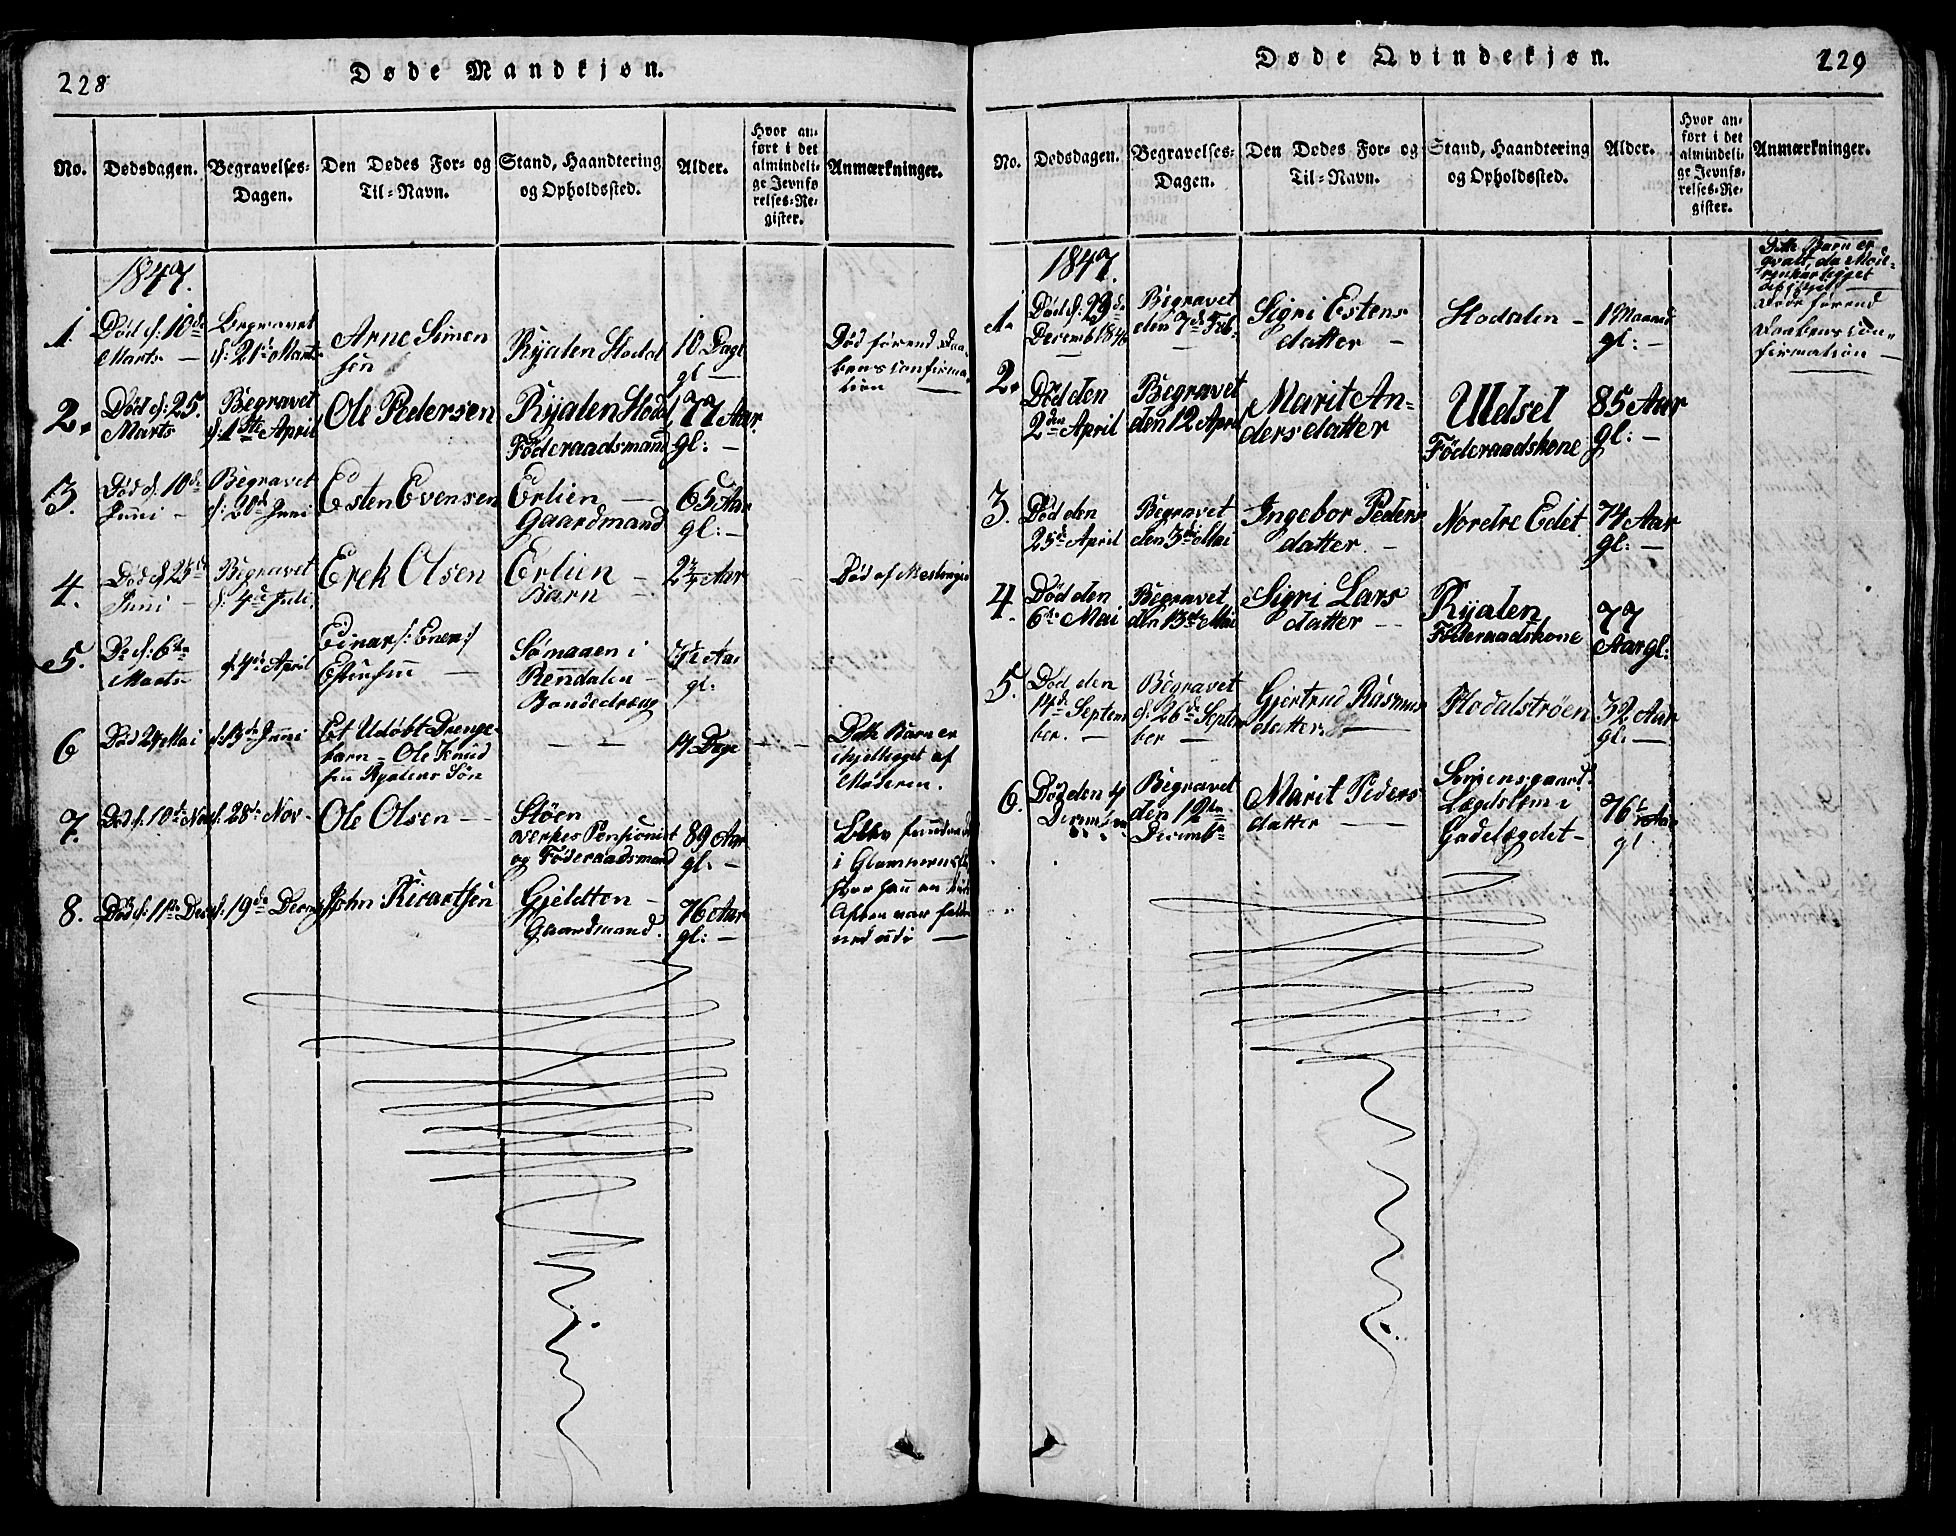 228
Døde Mandkjøn.
No.
Dødsdagen.
Begravelses-
Dagen.
Den Dødes For- og
Til-Navn.
Stand, Haandtering
og Opholdssted.
Alder.
Hvor an-
ført i det
almindeli-
ge Jevnfø-
relses-Re-
gister.
Anmærkninger.
1847.
1.
Død d: 10de
Marts —
Begravet
d: 21de Marts
Arne Simen
sen
Ryalen Hodal
10 Dage
gl —
Død førend Daa-
bens confirma-
tion —
2.
Død d: 25.
Marts
Begravet
d: 1ste April
Ole Pedersen
Ryalen Hodal
Föderaadsmand
77 Aar
gl: —
3.
Død d: 10de
Juni —
Begravet
d: 20de Juni
Esten Evensen
Erlien —
Gaardmand
65 Aar
gl: —
4.
Død d: 25de
Juni —
Begravet
d: 4de Juli
Erek Olsen
Erlien —
Barn —
Aar
Død af Meslinger
5.
Do d: 6te
Marts
d: 4de April
Einar /: Ener :/
Estensen —
Sömaaen i
Rendalen —
Bondedreng
Aar
gl:
6
Død 24 Mai
d: 13de Juni
Et Udöbt Drenge-
barn — Ole Knud
sen Ryalens Søn
— —
14 Dage
Dette Barn er
ihjellagt af
Moderen.
7.
Død d: 10de Nov
d: 28de Nov —
Ole Olsen —
Støen
Verkes Pensionist
og Föderaadsmand
89 Aar
gl: —
Blev funden død
i Glommen
hvor han en
Aften var falden
ned udi —
8.
Død d: 11te Dec
d: 19de Decemb
John Ricartsen
Gjeldten —
Gaardmand.
76 Aar
gl: —
Døde Qvindekjøn.
229
No.
Dødsdagen.
Begravelses-
Dagen.
Den Dødes For- og
Til-Navn.
Stand, Haandtering
og Opholdssted.
Alder.
Hvor an-
ført i det
almindeli-
ge Jevnfø-
relses-Re-
gister.
Anmærkninger.
1847.
1.
Død d: 29de
Decemb 1846
Begravet
den 7de Feb:
Sigri Estens
datter —
Hodalen —
1 Maaned
gl: —
Dette Barn er
qvalt, da Mod-
eren har ligget
det ihjel —
Døde førend
Daabens con-
firmation —
2.
Død den
2den April
Begravet
den 12 April
Marit An-
dersdatter
Uldsel
Föderaadskone
85 Aar
gl: —
3.
Død den
25de April
Begravet
den 3die Mai
Ingebor Peders
datter —
Nordre Edet
74 Aar
gl: —
4.
Død den
6te Mai
Begravet
den 13de Mai
Sigri Lars
datter —
Ryalen
Föderaadskone
77
Aar gl:
5.
Død den
14de Septem
ber. —
Begravet
d: 26de Septem
ber —
Gjertrud Rasmus
datter —
Hodalströen
32 Aar
gl: —
6.
Død den 4
Decemb
Begravet
den 12te
Decembr
Marit Peders
datter —
Simensgaard
Lægdslem i
Gadelægdet —
76
Aar
gl